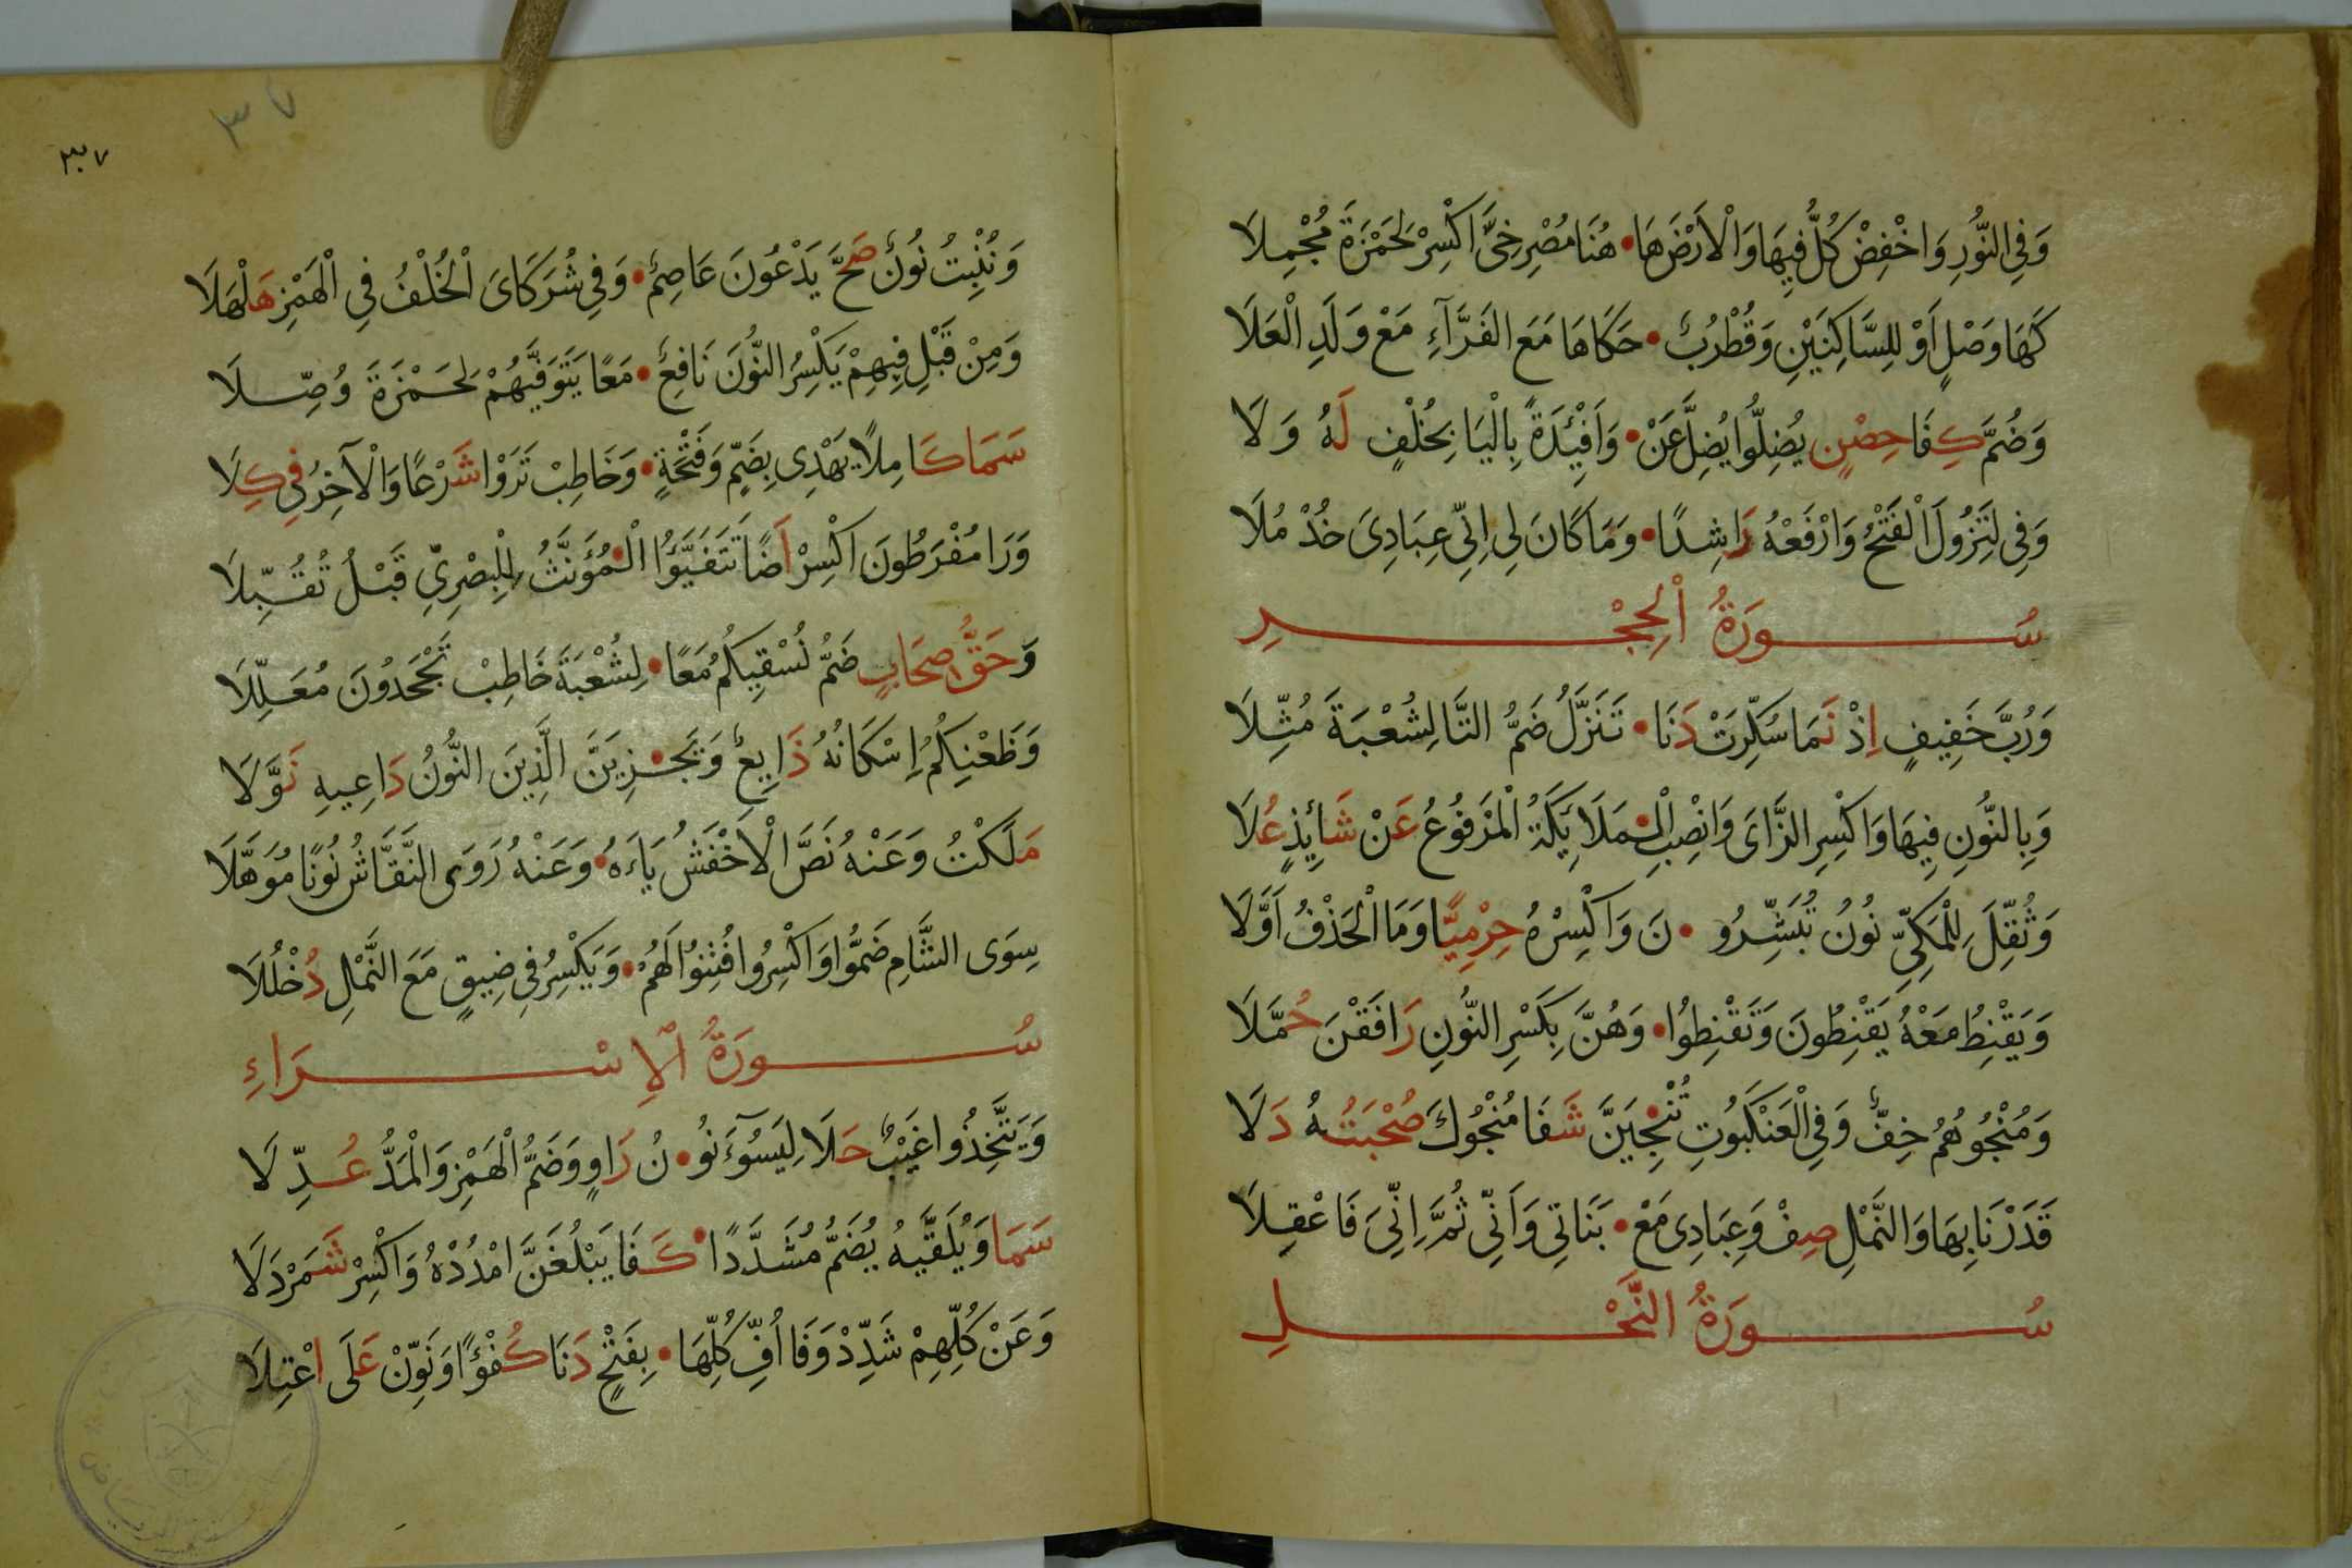 وَفِي النُّورِ وَاخْفِضْ كُلَّ فِيهَا وَالْاَرْضَ هَا • هُنَا مُصْرِخِيَّ اكْسِرْ لِحَمْزَةَ مُجْمِلَا
كَهَا وَصْلٍ اَوْ لِلسَّاكِنَيْنِ وَقُطْرُبٌ • حَكَاهَا مَعَ الْفَرَّآءِ مَعْ وَلَدِ الْعَلَا
وَضُمَّ كِفَا حِصْنٍ يُضِلُّوا يُضِلَّ عَنْ • وَاَفْئِيْدَةً بِالْيَا بِخُلْفٍ لَهُ وَلَا
وَفِي لِتَزُولَ الْفَتْحُ وَارْفَعْهُ رَاشِدًا • وَمَا كَانَ لِي اِنِّي عِبَادِيَ خُذْ مُلَا
سُورَةُ الْحِجْرِ
وَرُبَّ خَفِيفٍ اِذْ نَمَا سُكِّرَتْ دَنَا • تَنَزَّلُ ضَمُّ التَّا لِشُعْبَةَ مُثِّلَا
وَبِالنُّونِ فِيهَا وَاكْسِرِ الزَّايَ وَانْصِبِ الْـ • ـمَلَايِكَةُ الْمَرْفُوعُ عَنْ شَائِذٍ عُلَا
وَثُقِّلَ لِلْمَكِّيِّ نُونُ تُبَشِّرُو • نَ وَاكْسِرْهُ حِرْمِيًّا وَمَا الْحَذْفُ اَوَّلَا
وَيَقْنِطُ مَعْهُ يَقْنِطُونَ وَتَقْنِطُوا • وَهُنَّ بِكَسْرِ النُّونِ رَافَقْنَ حُمَّلَا
وَمُنْجُوهُمُ خِفٌّ وَفِي الْعَنْكَبُوتِ تُنْـ • ـجِيَنَّ شَفَا مُنْجُوكَ صُحْبَتُهُ دَلَا
قَدَرْنَا بِهَا وَالنَّمْلِ صِفْ وَعِبَادِي مَعْ • بَنَاتِي وَاَنِّي ثُمَّ اِنِّيَ فَاعْقِلَا
سُورَةُ النَّحْلِ
٣٧
٣٧
وَنُنْبِتُ نُونٌ صَحَّ يَدْعُونَ عَاصِمٌ • وَفِي شُرَكَايَ الْخُلْفُ فِي الْهَمْزِ هَلْهَلَا
وَمِنْ قَبْلِ فِيهِمْ يَكْسِرُ النُّونَ نَافِعٌ • مَعًا يَتَوَفَّيهُمْ لِحَمْزَةَ وُصِّلَا
سَمَا كَامِلًا يَهْدِى بِضَمٍّ وَفَتْحَةٍ • وَخَاطِبْ تَرَوْا شَرْعًا وَالْآخِرُ فِي كِلَا
وَرَا مُفْرَطُونَ اكْسِرْ اَضًا تَتَفَيَّؤُا الْـ • ـمُؤَنَّثُ لِلْبِصْرِيِّ قَبْلُ تُقُبِّلَا
وَحَقُّ صِحَابٍ ضَمُّ نُسْقِيكُمُ مَعًا • لِشُعْبَةَ خَاطِبْ تَجْحَدُونَ مُعَلِّلَا
وَظَعْنِكُمُ اِسْكَانُهُ ذَايِعٌ وَنَجْـ • ـزِيَنَّ الَّذِينَ النُّونُ دَاعِيهِ نَوَّلَا
مَلَكْتُ وَعَنْهُ نَصَّ الْاَخْفَشُ يَاءَهُ • وَعَنْهُ رَوَى النَّقَّاشُ نُونًا مُوَهَّلَا
سِوَى الشَّامِ ضَمُّوا وَاكْسِرُوا فُتِنُوا لَهُمْ • وَيَكْسِرُ فِي ضِيقٍ مَعَ النَّمْلِ دُخْلُلَا
سُورَةُ الْاِسْرَاءِ
وَيَتَّخِذُوا غَيْبٌ حَلَا لِيَسُوٓءَ نُو • نُ رَاوٍ وَضَمُّ الْهَمْزِ وَالْمَدُّ عُدِّلَا
سَمَا وَيُلَقَّيهُ يُضَمُّ مُشَدَّدًا • كَفَا يَبْلُغَنَّ امْدُدْهُ وَاكْسِرْ شَمَرْدَلَا
وَعَنْ كُلِّهِمْ شَدِّدْ وَفَا اُفِّ كُلِّهَا • بِفَتْحٍ دَنَا كُفْؤًا وَنَوِّنْ عَلَى اعْتِلَا